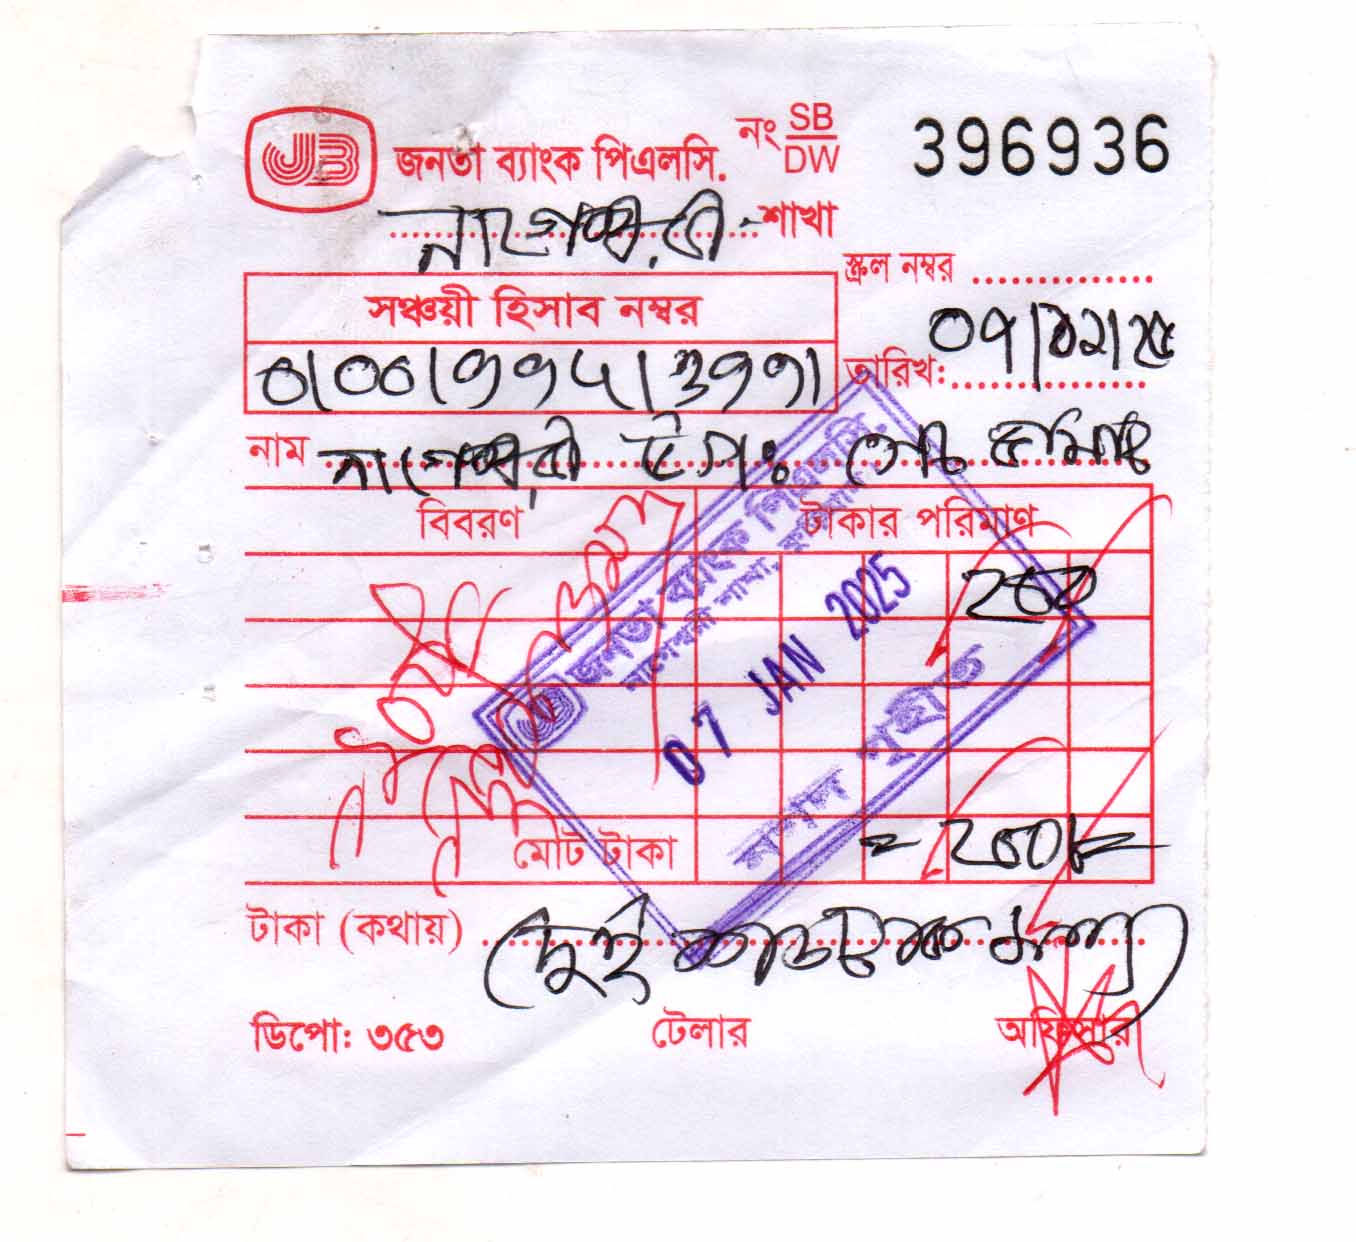 JB জনতা ব্যাংক পিএলসি. নং SB/DW 396936
নাগেশ্বরী শাখা
স্ক্রল নম্বর
সঞ্চয়ী হিসাব নম্বর
তারিখ: ০৭/০১/২৫
নাম নাগেশ্বরী উপঃ
বিবরণ টাকার পরিমাণ
200
জনতা ব্যাংক পিএলসি.
নাগেশ্বরী শাখা, কুড়িগ্রাম
07 JAN 2025
নগদ গৃহীত
মোট টাকা = 200/=
টাকা (কথায়) দুই শত টাকা মাত্র
ডিপো: ৩৫৩ টেলার অফিসার